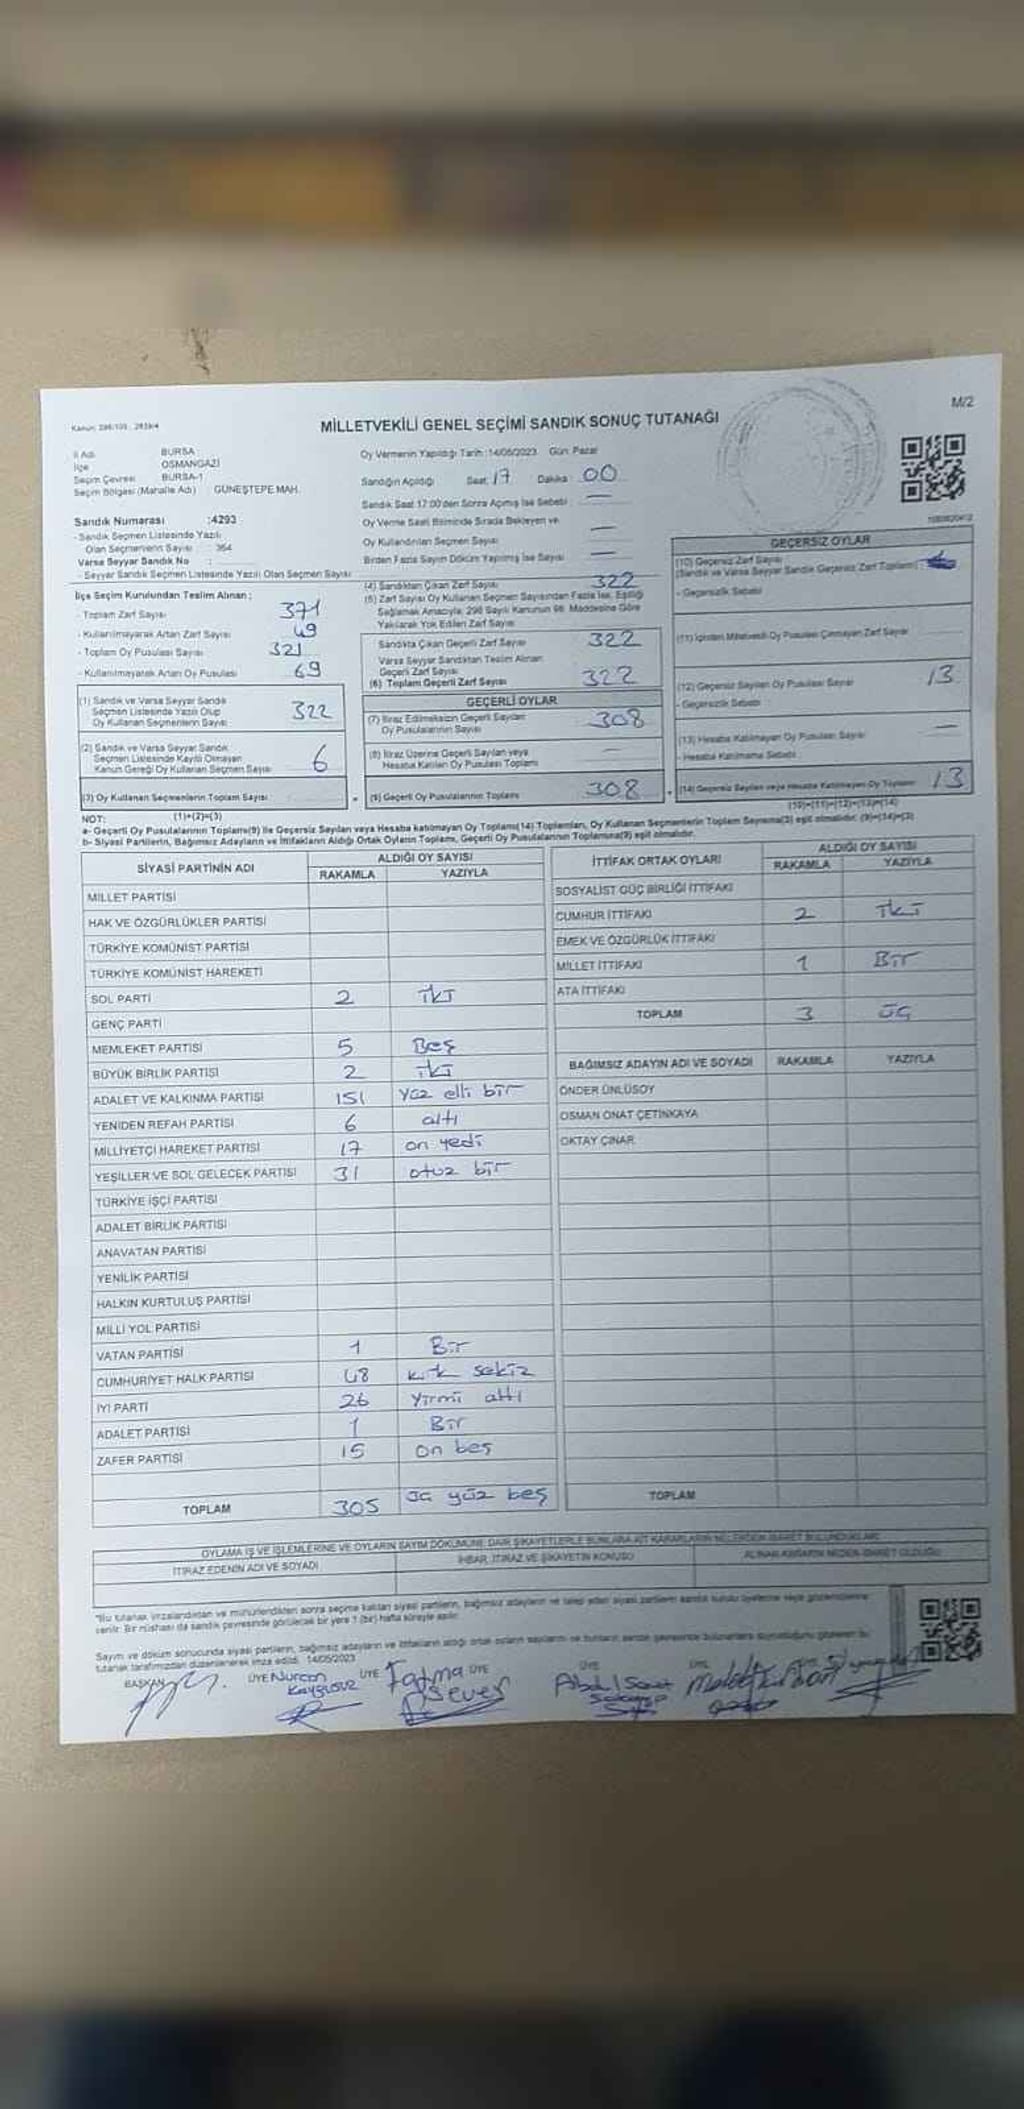 Kanun: 298/105, 2839/4
MİLLETVEKİLİ GENEL SEÇİMİ SANDIK SONUÇ TUTANAĞI
M/2
İl Adı BURSA
İlçe OSMANGAZİ
Seçim Çevresi BURSA-1
Seçim Bölgesi (Mahalle Adı) GÜNEŞTEPE MAH.
Sandık Numarası :4293
- Sandık Seçmen Listesinde Yazılı
Olan Seçmenlerin Sayısı : 364
Varsa Seyyar Sandık No :
- Seyyar Sandık Seçmen Listesinde Yazılı Olan Seçmen Sayısı:
İlçe Seçim Kurulundan Teslim Alınan ;
- Toplam Zarf Sayısı 371
- Kullanılmayarak Artan Zarf Sayısı 49
- Toplam Oy Pusulası Sayısı 321
- Kullanılmayarak Artan Oy Pusulası 69
(1) Sandık ve Varsa Seyyar Sandık
Seçmen Listesinde Yazılı Olup
Oy Kullanan Seçmenlerin Sayısı 322
(2) Sandık ve Varsa Seyyar Sandık
Seçmen Listesinde Kayıtlı Olmayan
Kanun Gereği Oy Kullanan Seçmen Sayısı 6
(3) Oy Kullanan Seçmenlerin Toplam Sayısı
(1)+(2)=(3)
Oy Vermenin Yapıldığı Tarih :14/05/2023 Gün: Pazar
Sandığın Açıldığı Saat: 17 Dakika: 00
Sandık Saat 17:00'den Sonra Açılmış İse Sebebi : —
Oy Verme Saati Bitiminde Sırada Bekleyen ve
Oy Kullandırılan Seçmen Sayısı —
Birden Fazla Sayım Döküm Yapılmış İse Sayısı —
(4) Sandıktan Çıkan Zarf Sayısı 322
(5) Zarf Sayısı Oy Kullanan Seçmen Sayısından Fazla İse, Eşitliği
Sağlamak Amacıyla; 298 Sayılı Kanunun 98. Maddesine Göre
Yakılarak Yok Edilen Zarf Sayısı
Sandıkta Çıkan Geçerli Zarf Sayısı 322
Varsa Seyyar Sandıktan Teslim Alınan
Geçerli Zarf Sayısı
(6) Toplam Geçerli Zarf Sayısı 322
GEÇERLİ OYLAR
(7) İtiraz Edilmeksizin Geçerli Sayılan
Oy Pusulalarının Sayısı 308
(8) İtiraz Üzerine Geçerli Sayılan veya
Hesaba Katılan Oy Pusulası Toplamı —
(9) Geçerli Oy Pusulalarının Toplamı 308
GEÇERSİZ OYLAR
(10) Geçersiz Zarf Sayısı
(Sandık ve Varsa Seyyar Sandık Geçersiz Zarf Toplamı)
- Geçersizlik Sebebi
(11) İçinden Milletvekili Oy Pusulası Çıkmayan Zarf Sayısı
(12) Geçersiz Sayılan Oy Pusulası Sayısı 13
- Geçersizlik Sebebi
(13) Hesaba Katılmayan Oy Pusulası Sayısı —
- Hesaba Katılmama Sebebi
(14) Geçersiz Sayılan veya Hesaba Katılmayan Oy Toplamı 13
(10)+(11)+(12)+(13)=(14)
NOT:
a- Geçerli Oy Pusulalarının Toplamı(9) ile Geçersiz Sayılan veya Hesaba katılmayan Oy Toplamı(14) Toplamları, Oy Kullanan Seçmenlerin Toplam Sayısına(3) eşit olmalıdır. (9)+(14)=(3)
b- Siyasi Partilerin, Bağımsız Adayların ve İttifakların Aldığı Ortak Oyların Toplamı, Geçerli Oy Pusulalarının Toplamına(9) eşit olmalıdır.
SİYASİ PARTİNİN ADI ALDIĞI OY SAYISI
RAKAMLA YAZIYLA
MİLLET PARTİSİ
HAK VE ÖZGÜRLÜKLER PARTİSİ
TÜRKİYE KOMÜNİST PARTİSİ
TÜRKİYE KOMÜNİST HAREKETİ
SOL PARTİ 2 İki
GENÇ PARTİ
MEMLEKET PARTİSİ 5 Beş
BÜYÜK BİRLİK PARTİSİ 2 İki
ADALET VE KALKINMA PARTİSİ 151 yüz elli bir
YENİDEN REFAH PARTİSİ 6 altı
MİLLİYETÇİ HAREKET PARTİSİ 17 on yedi
YEŞİLLER VE SOL GELECEK PARTİSİ 31 otuz bir
TÜRKİYE İŞÇİ PARTİSİ
ADALET BİRLİK PARTİSİ
ANAVATAN PARTİSİ
YENİLİK PARTİSİ
HALKIN KURTULUŞ PARTİSİ
MİLLİ YOL PARTİSİ
VATAN PARTİSİ 1 Bir
CUMHURİYET HALK PARTİSİ 48 kırk sekiz
İYİ PARTİ 26 Yirmi altı
ADALET PARTİSİ 1 Bir
ZAFER PARTİSİ 15 on beş
TOPLAM 305 üç yüz beş
İTTİFAK ORTAK OYLARI ALDIĞI OY SAYISI
RAKAMLA YAZIYLA
SOSYALİST GÜÇ BİRLİĞİ İTTİFAKI
CUMHUR İTTİFAKI 2 İki
EMEK VE ÖZGÜRLÜK İTTİFAKI
MİLLET İTTİFAKI 1 Bir
ATA İTTİFAKI
TOPLAM 3 üç
BAĞIMSIZ ADAYIN ADI VE SOYADI RAKAMLA YAZIYLA
ÖNDER ÜNLÜSOY
OSMAN ONAT ÇETİNKAYA
OKTAY ÇINAR
TOPLAM
OYLAMA İŞ VE İŞLEMLERİNE VE OYLARIN SAYIM DÖKÜMÜNE DAİR ŞİKAYETLERLE BUNLARA AİT KARARLARIN NELERDEN İBARET BULUNDUKLARI
İTİRAZ EDENİN ADI VE SOYADI İHBAR, İTİRAZ VE ŞİKAYETİN KONUSU
*Bu tutanak imzalandıktan ve mühürlendikten sonra seçime katılan siyasi partilerin, bağımsız adayların ve talep eden siyasi partilerin sandık kurulu üyelerine veya gözlemcilerine
verilir. Bir nüshası da sandık çevresinde görülecek bir yere 1 (bir) hafta süreyle asılır.
Sayım ve döküm sonucunda siyasi partilerin, bağımsız adayların ve ittifakların aldığı ortak oyların sayılarını
tutanak tarafımızdan düzenlenerek imza edildi. 14/05/2023
BAŞKAN ÜYE Nurcan ÜYE Fatma ÜYE ÜYE ÜYE
Kaygusuz Sever